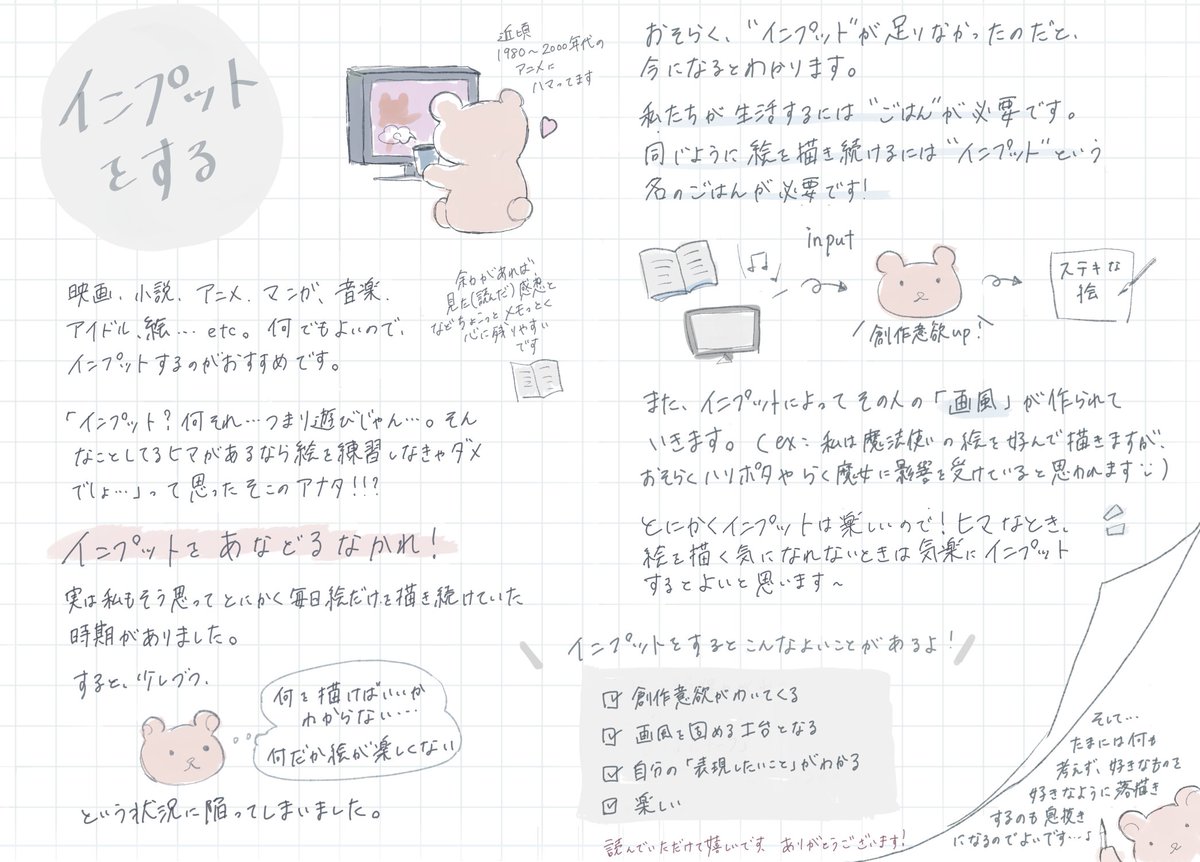 インプット
をする
近頃
1980〜2000年代の
アニメに
ハマってます
映画、小説、アニメ、マンガ、音楽、
アイドル、絵…etc。何でもよいので、
インプットするのがおすすめです。
余力があれば、
見た(読んだ)感想と
などちょこっとメモっとく
心に残りやすい
です
「インプット?何それ…つまり遊びじゃん…。そん
なことしてるヒマがあるなら絵を練習しなきゃダメ
でしょ…」って思ったそこのアナタ!!?
インプットをあなどるなかれ!
実は私もそう思ってとにかく毎日絵だけを描き続けていた
時期がありました。
すると、少しづつ、
何を描けばいいか
わからない…
何だか絵が楽しくない
という状況に陥ってしまいました。
おそらく、"インプット"が足りなかったのだと、
今になるとわかります。
私たちが生活するには"ごはん"が必要です。
同じように絵を描き続けるには"インプット"という
名のごはんが必要です!
input
創作意欲up!
ステキな
絵
また、インプットによってその人の「画風」が作られて
いきます。(ex:私は魔法使いの絵を好んで描きますが、
おそらくハリポタやらく魔女に影響を受けていると思われます)
とにかくインプットは楽しいので!ヒマなとき、
絵を描く気になれないときは気楽にインプット
するとよいと思います〜
インプットをするとこんなよいことがあるよ!
創作意欲がわいてくる
画風を固める土台となる
自分の「表現したいこと」がわかる
楽しい
読んでいただけて嬉しいです ありがとうございます!
そして…
たまには何も
考えず、好きなものを
好きなように落描き
するのも息抜き
になるのでよいです…♩